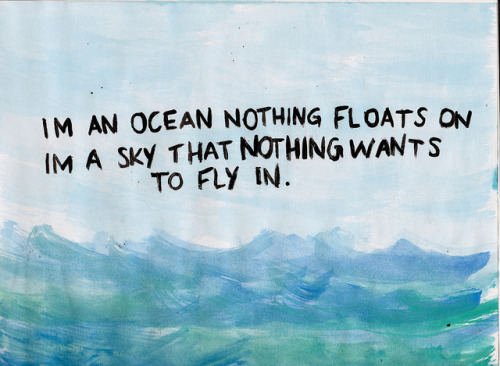 IM AN OCEAN NOTHING FLOATS ON
IM A SKY THAT NOTHING WANTS
TO FLY IN.